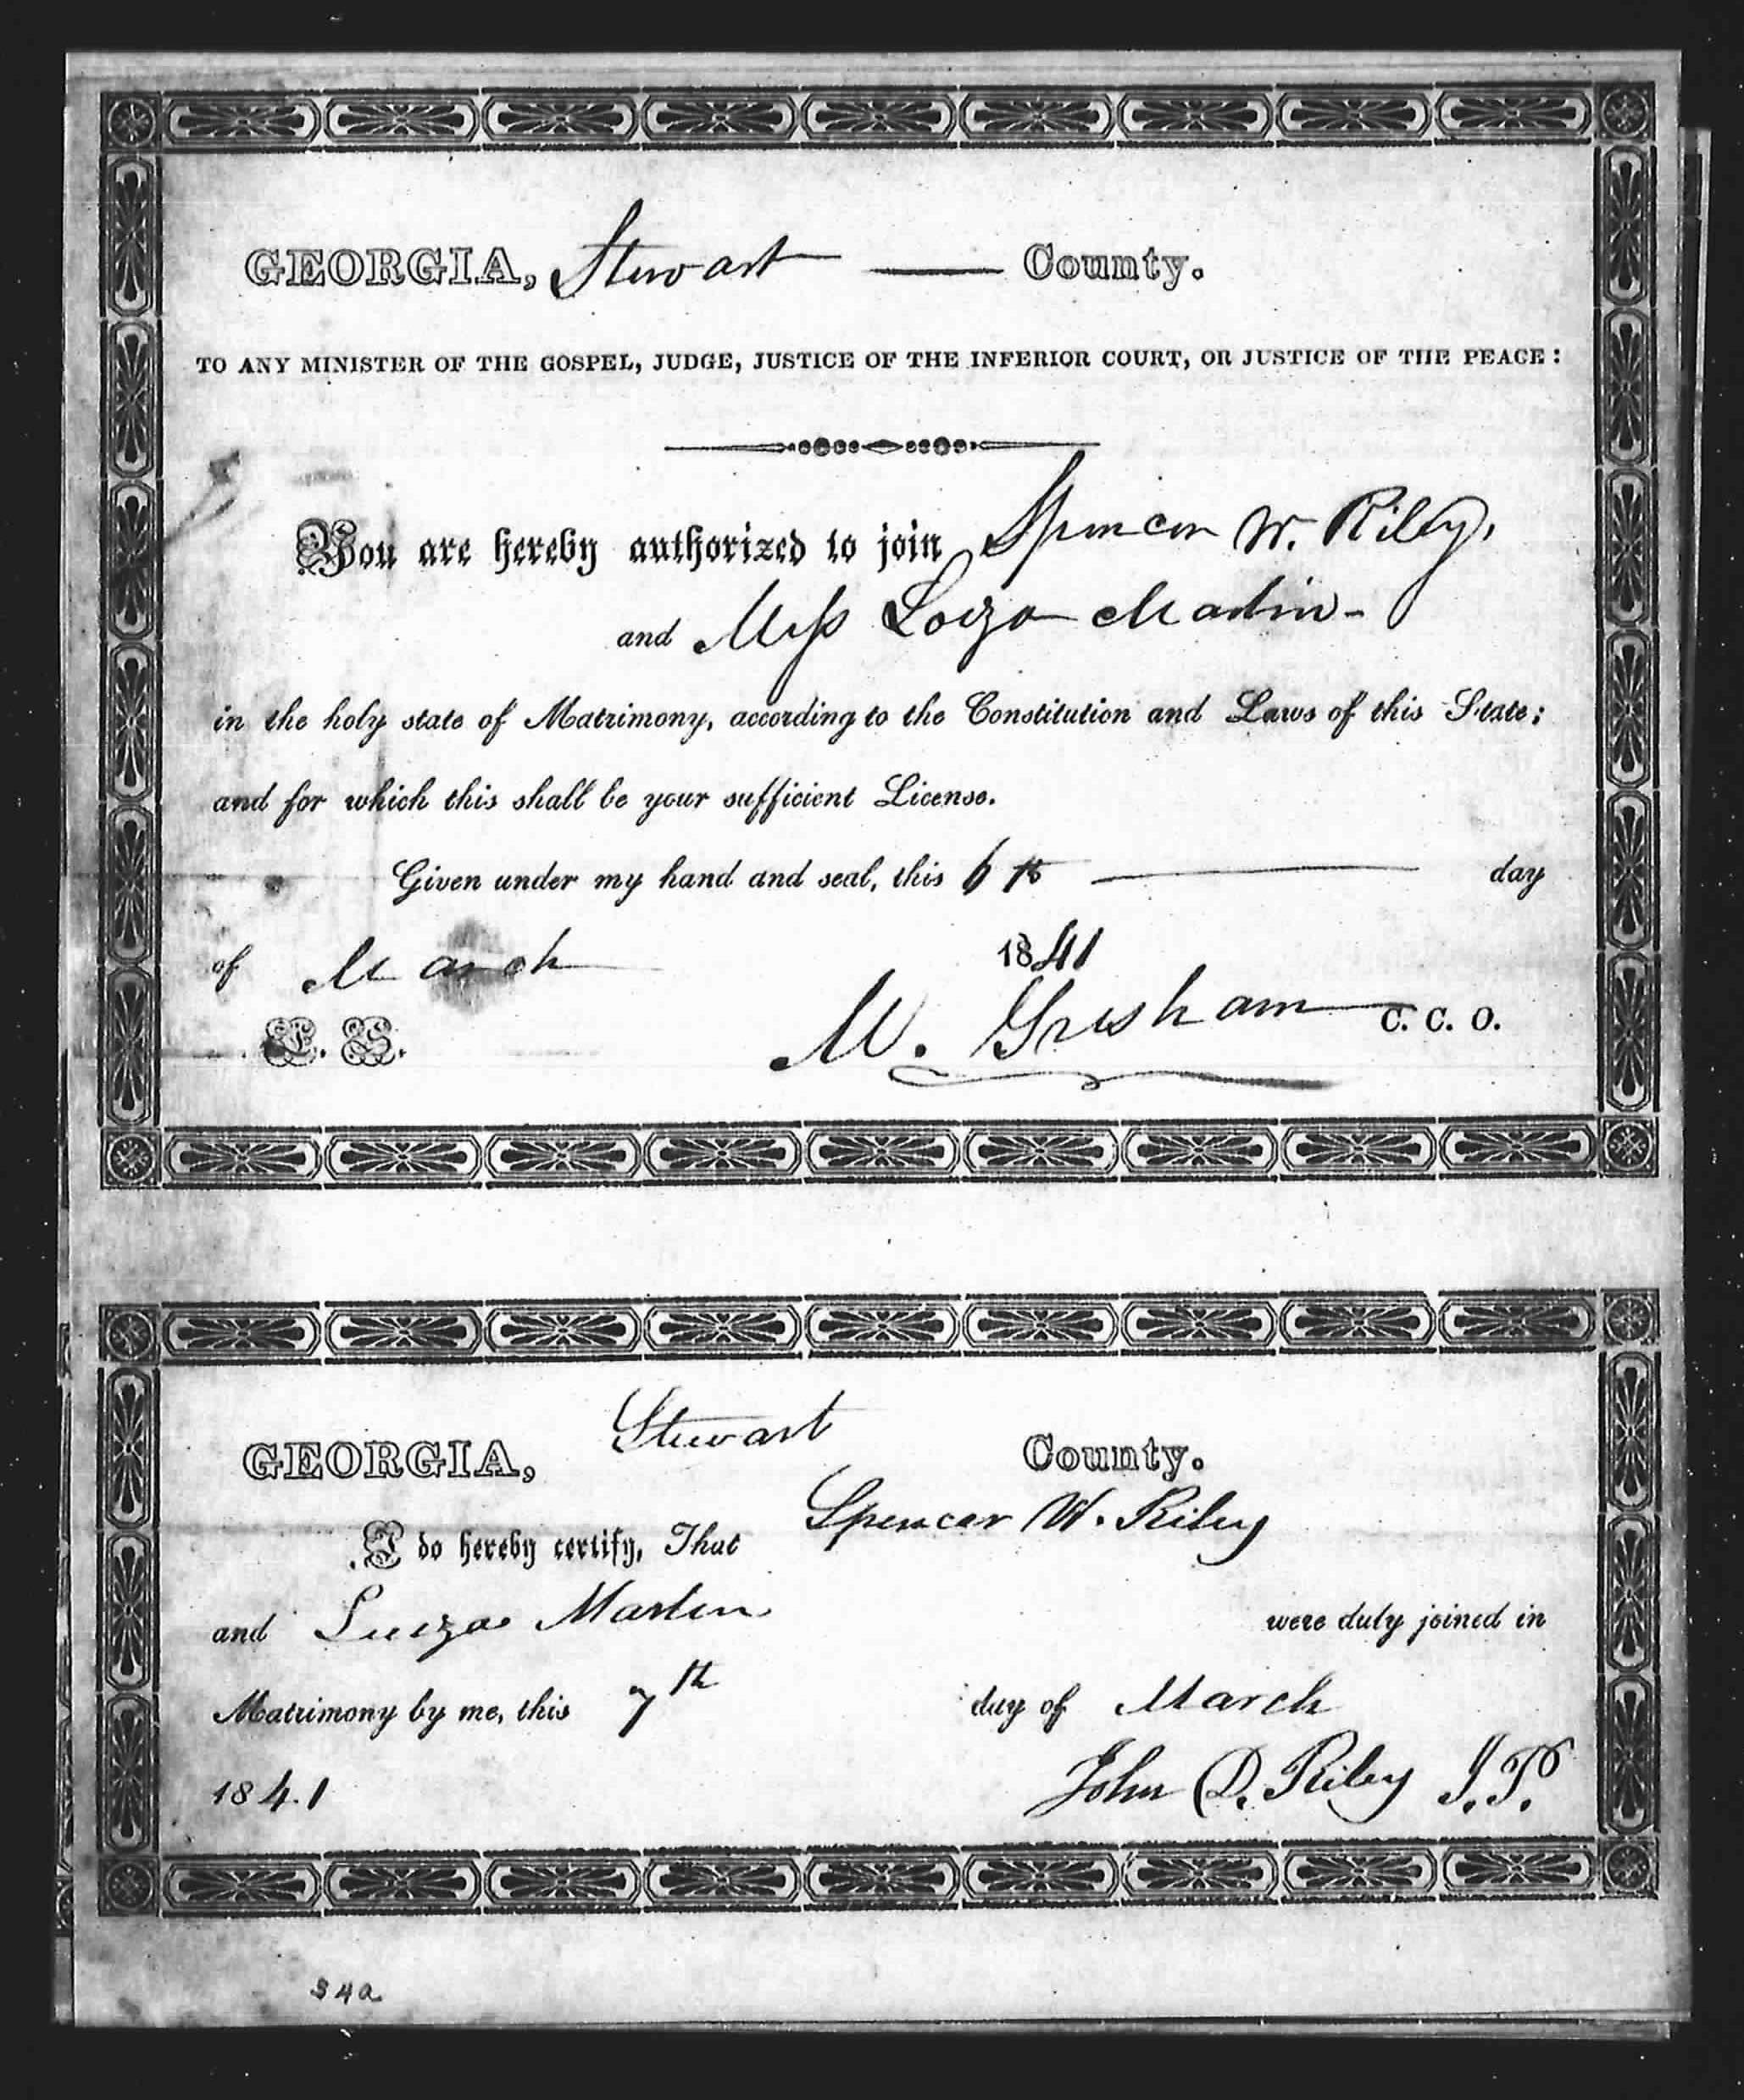 GEORGIA, Stewart County.
TO ANY MINISTER OF THE GOSPEL, JUDGE, JUSTICE OF THE INFERIOR COURT, OR JUSTICE OF THE PEACE:
You are hereby authorized to join Spencer W. Riley,
and Miss Loiza Martin-
in the holy state of Matrimony, according to the Constitution and Laws of this State;
and for which this shall be your sufficient License.
Given under my hand and seal, this 6th day
of March 1841
L. S. W. Gresham C. C. O.
GEORGIA, Stewart County.
I do hereby certify, That Spencer W. Riley
and Luiza Martin were duly joined in
Matrimony by me, this 7th day of March
1841 John D. Riley J.P.
34a